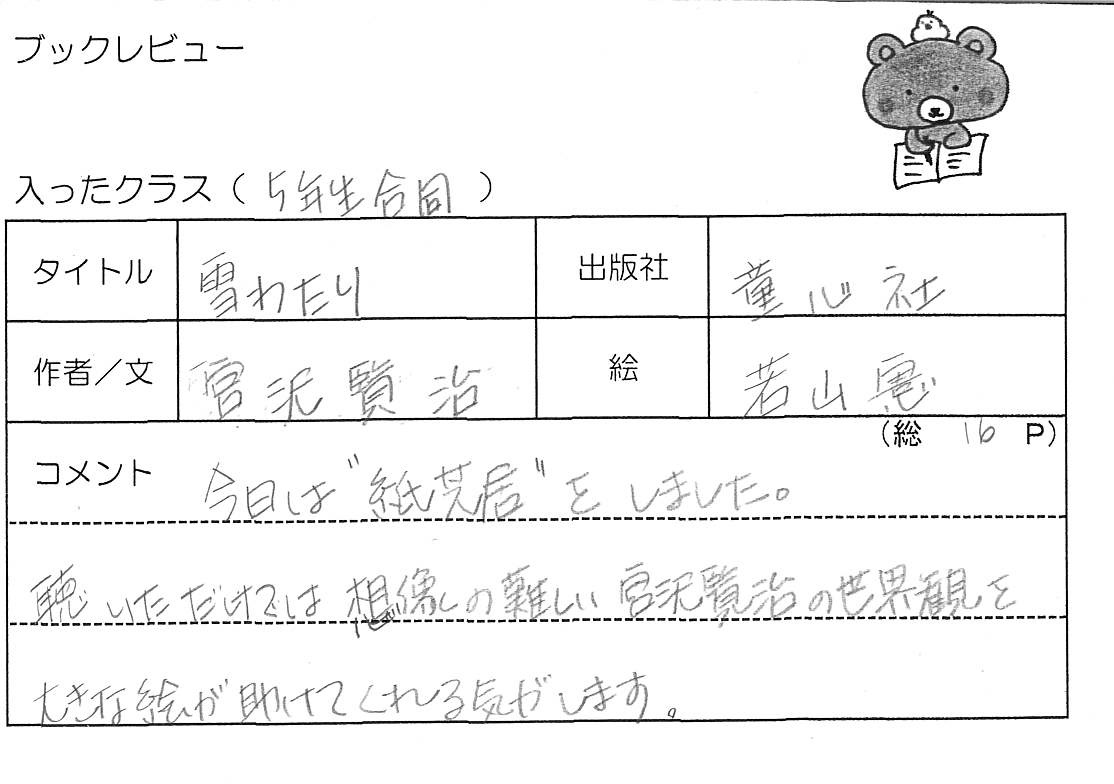 ブックレビュー
入ったクラス( 5年生合同 )
タイトル 雪わたり 出版社 童心社
作者/文 宮沢賢治 絵 若山憲
(総 16 P)
コメント 今日は"紙芝居"をしました。
聴いただけでは想像しの難しい宮沢賢治の世界観を
大きな絵が助けてくれる気がします。